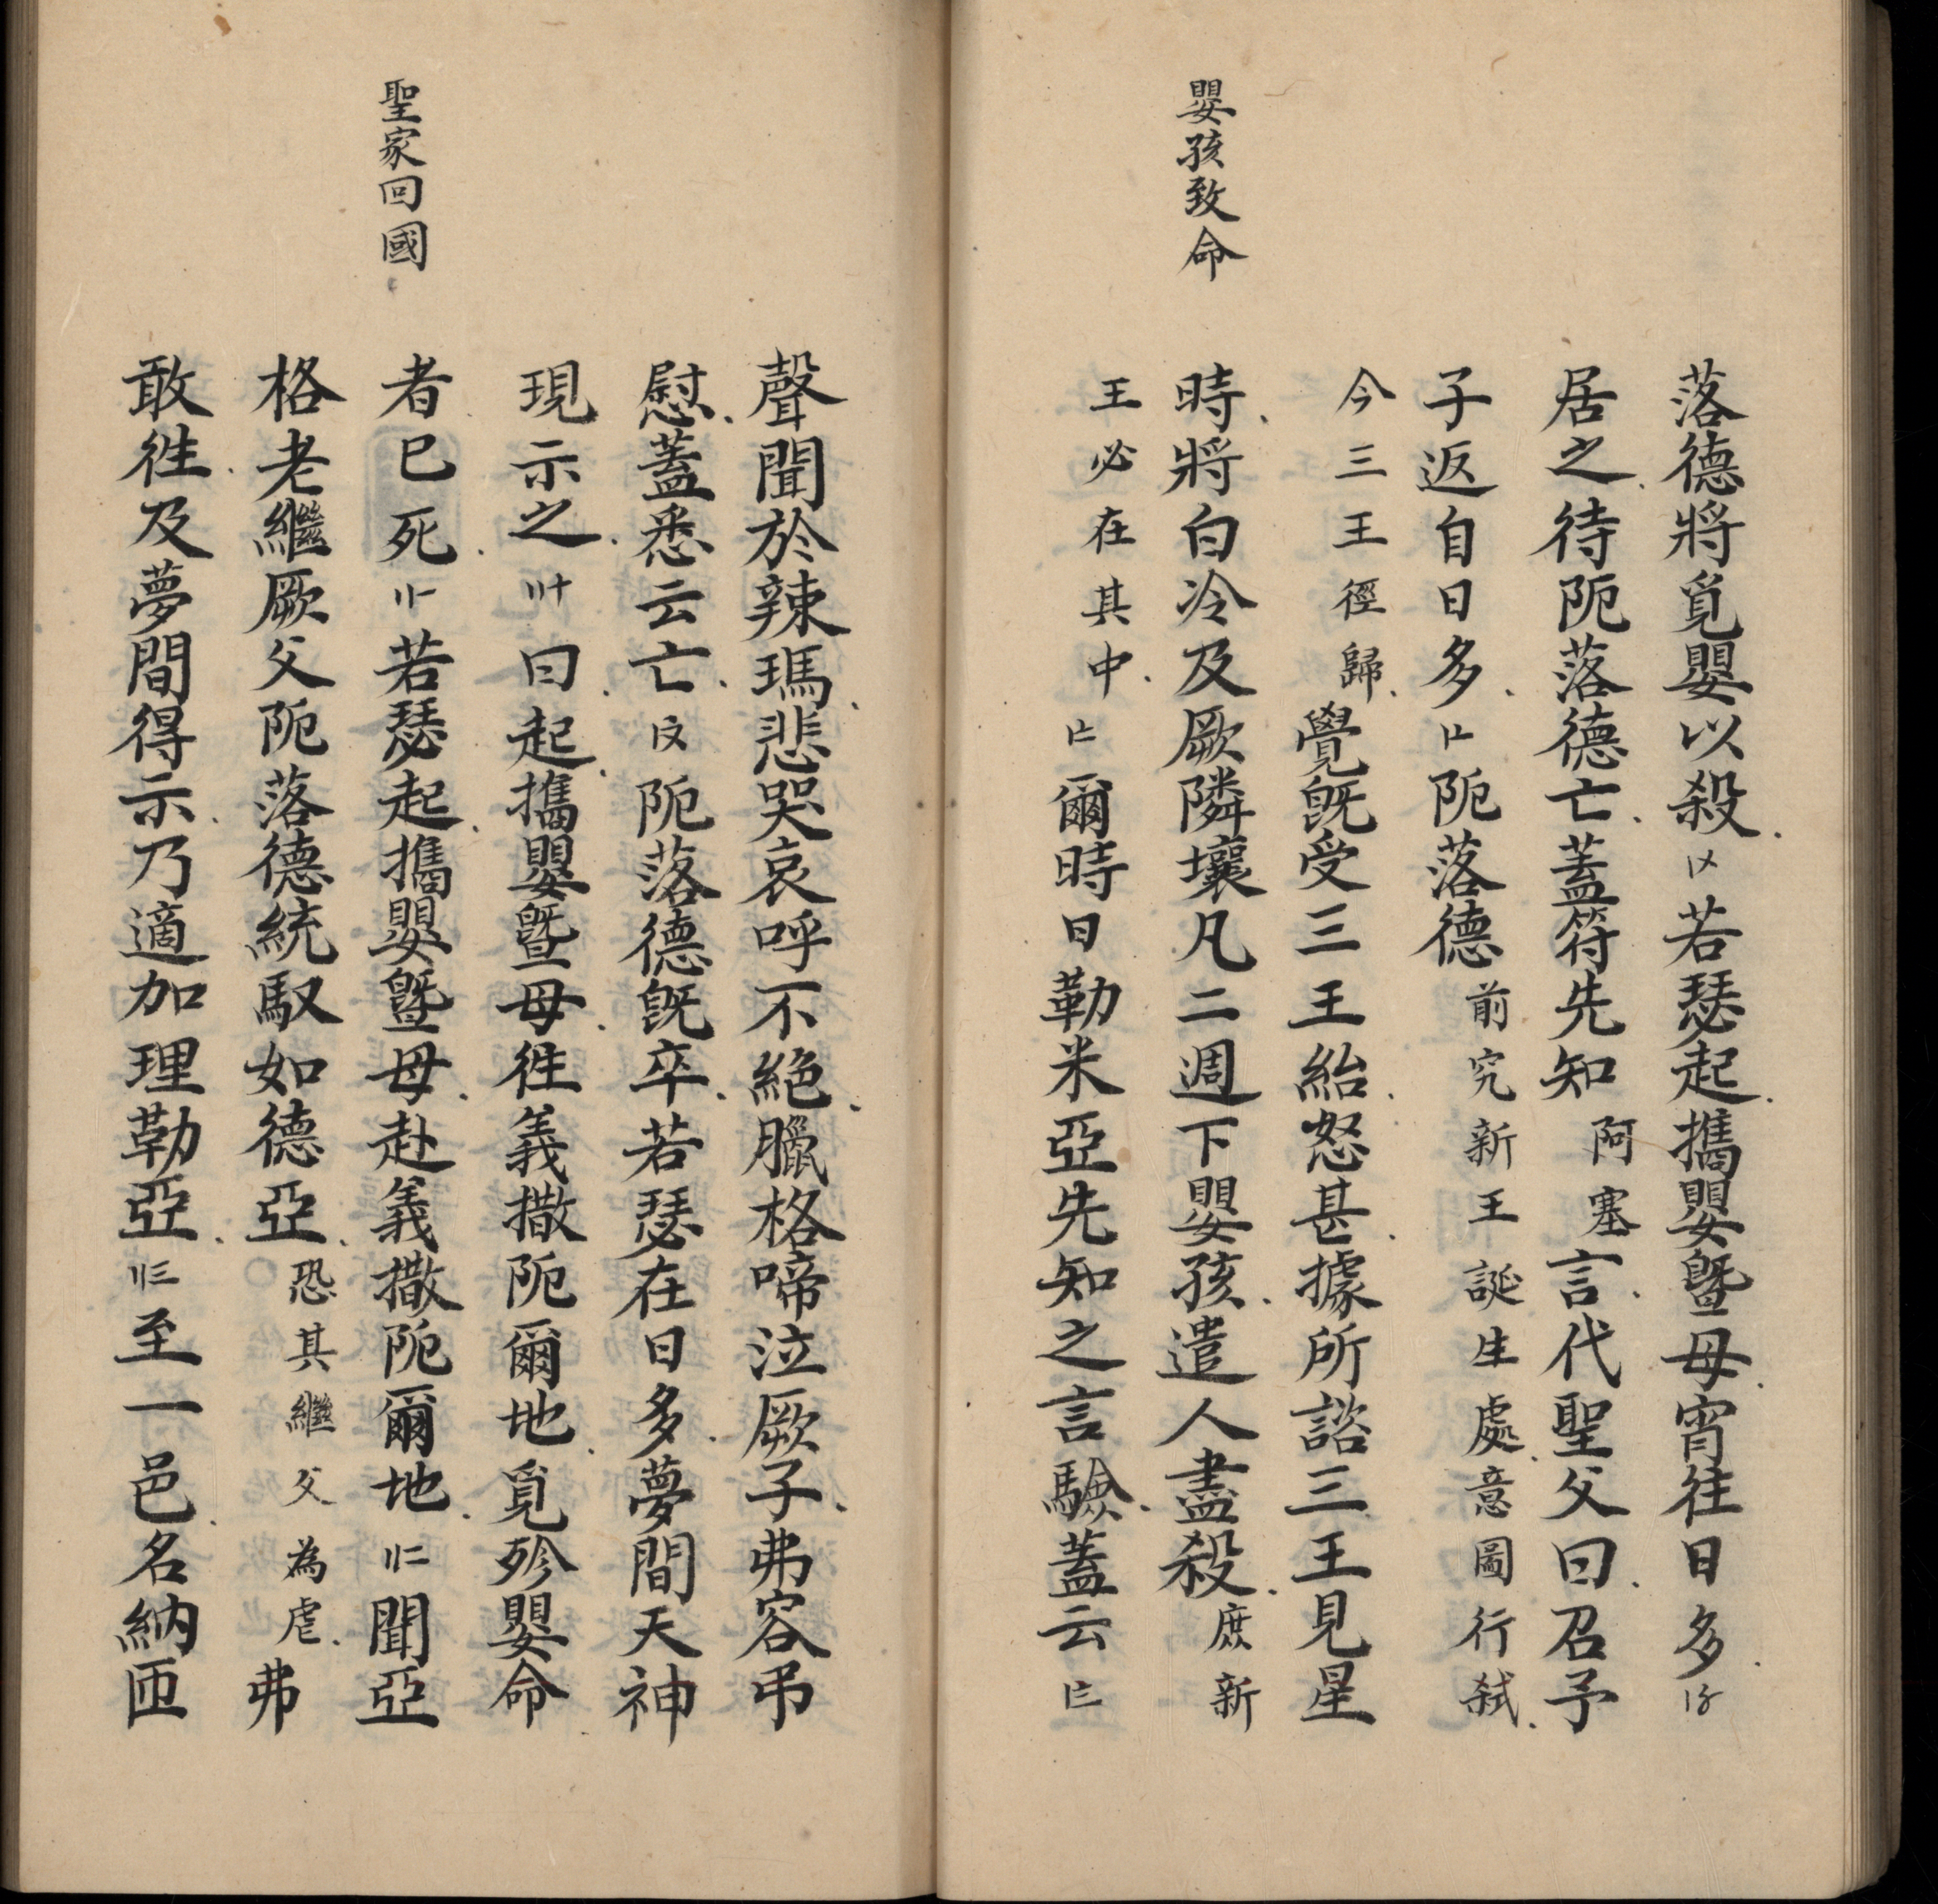 嬰孩致命
落德將覓嬰以殺〡〤若瑟起攜嬰暨母宵往日多〡〥
居之待阨落德亡蓋符先知阿塞言代聖父曰召予
子返自日多〡〦阨落德前究新王誕生處意圖行弒
今三王徑歸覺旣受三王紿怒甚據所諮三王見星
時將白冷及厥隣壤凡二週下嬰孩遣人盡殺庶新
王必在其中〡〧爾時日勒米亞先知之言驗蓋云〡〨
聖家回國
聲聞於辣瑪悲哭哀呼不絕臘格啼泣厥子弗容弔
慰蓋悉云亡〡〩阨落德旣卒若瑟在日多夢間天神
現示之〢十曰起攜嬰暨母徃義撒阨爾地覓殄嬰命
者已死〢〡若瑟起攜嬰暨母赴義撒阨爾地〢二聞亞
格老繼厥父阨落德統馭如德亞恐其繼父為虐弗
敢徃及夢間得示乃適加理勒亞〢三至一邑名納匝